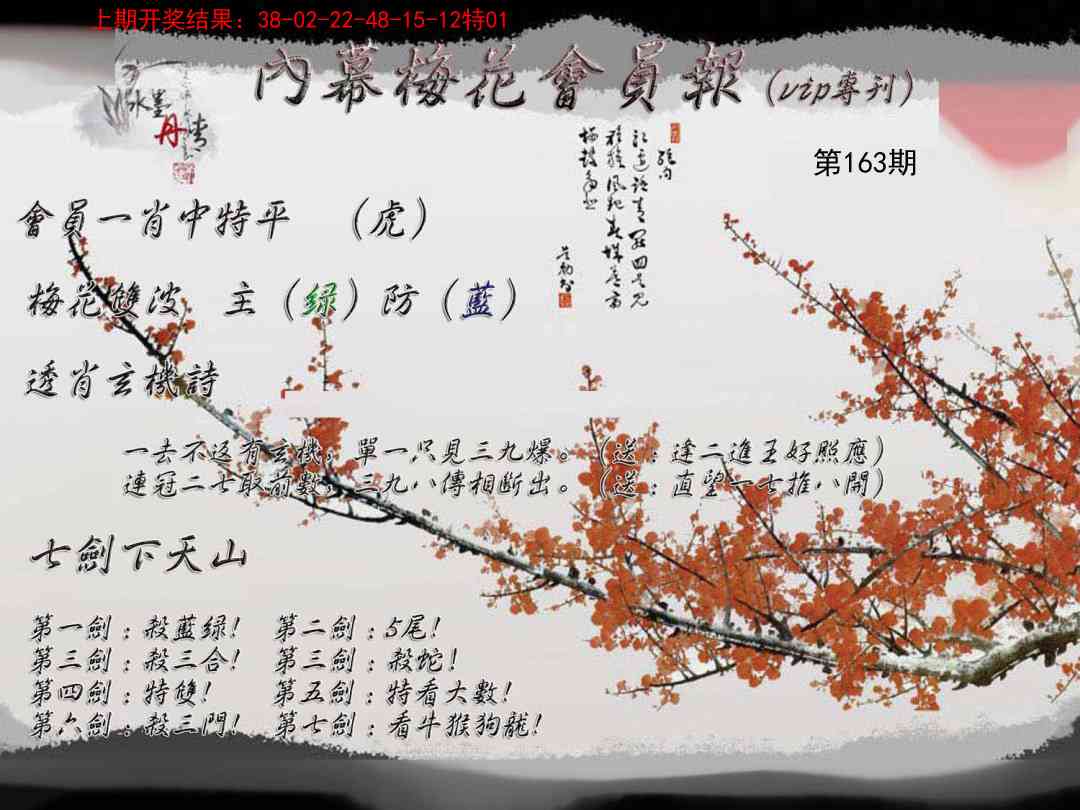 上期开奖结果：38-02-22-48-15-12特01
內幕梅花會員報（vip專刊）
水墨
丹青
第163期
會員一肖中特平 （虎）
梅花雙波 主（绿）防（藍）
透肖玄機詩
一去不返有玄機，單一只見三九爆。（送：逢二進五好照應）
連冠二七取前數，三九八傳相斷出。（送：直望一七推八開）
七劍下天山
第一劍：殺藍绿！ 第二劍：5尾！
第三劍：殺三合！ 第三劍：殺蛇！
第四劍：特雙！ 第五劍：特看大數！
第六劍：殺三門！ 第七劍：看牛猴狗龍！